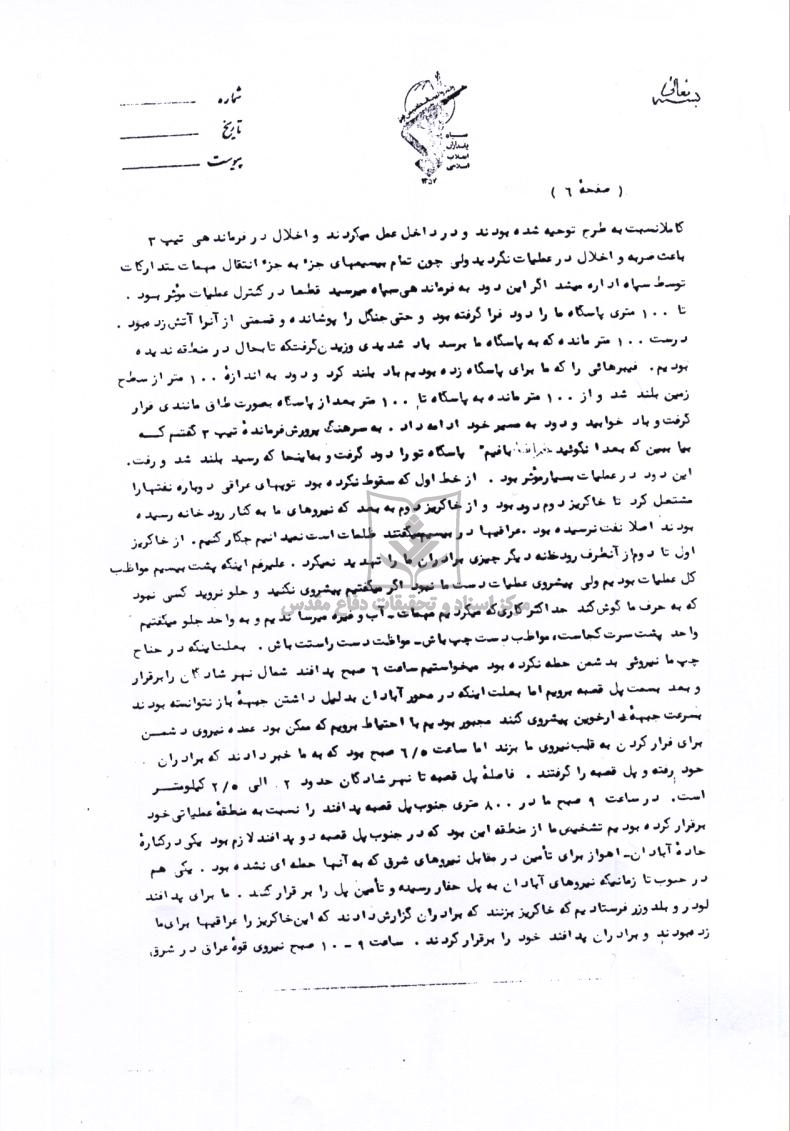 بسمه تعالی
شماره
تاریخ
پیوست
سپاه
پاسداران
انقلاب
اسلامی
۱۳۵۷
( صفحهٔ ۶ )
کاملا نسبت به طرح توجیه شده بودند و در داخل عمل میکردند و اخلال در فرماندهی تیپ ۳
باعث ضربه و اخلال در عملیات نگردید ولی چون تمام بیسیمهای جزء به جزء انتقال مهمات ـ تدارکات
توسط سپاه اداره میشد اگر این دود به فرماندهی سپاه میرسید قطعا در کنترل عملیات مؤثر بود .
تا ۱۰۰ متری پاسگاه ما را دود فرا گرفته بود و حتی جنگل را پوشانده و قسمتی از آنرا آتش زده بود .
درست ۱۰۰ متر مانده که به پاسگاه ما برسد باد شدیدی وزیدن گرفت که تا بحال در منطقه ندیده
بودیم . فیبرهائی را که ما برای پاسگاه زده بودیم باد بلند کرد و دود به اندازهٔ ۱۰۰ متر از سطح
زمین بلند شد و از ۱۰۰ متر مانده به پاسگاه تا ۱۰۰ متر بعد از پاسگاه بصورت طاق مانندی قرار
گرفت و باد خوابید و دود به مسیر خود ادامه داد . به سرهنگ پرورش فرماندهٔ تیپ ۳ گفتم که
بیا ببین که بعدا نگوئید بافیم" پاسگاه تو را دود گرفت و به اینجا که رسید بلند شد و رفت .
این دود در عملیات بسیار مؤثر بود . از خط اول که سقوط نکرده بود توپهای عراقی دوباره نفتها را
مشتعل کرد تا خاکریز دوم دود بود و از خاکریز دوم به بعد که نیروهای ما به کنار رودخانه رسیده
بودند اصلا نفت نرسیده بود . عراقیها در بیسیم میگفتند ظلمات است نمیدانیم چکار کنیم . از خاکریز
اول تا دوم از آنطرف رودخانه دیگر چیزی برادران ما را تهدید نمیکرد . علیرغم اینکه پشت بیسیم مواظب
کل عملیات بودیم ولی پیشروی عملیات دست ما نبود اگر میگفتیم پیشروی نکنید و جلو نروید کسی نبود
که به حرف ما گوش کند حداکثر کاری که میکردیم مهمات ـ آب و غیره میرساندیم و به واحد جلو میگفتیم
واحد پشت سرت کجاست، مواظب دست چپ باش ـ مواظب دست راستت باش . بعلت اینکه در جناح
چپ ما نیروئی به دشمن حمله نکرده بود میخواستیم ساعت ۶ صبح پدافند شمال نهر شادگان را برقرار
و بعد بسمت پل قصبه برویم اما بعلت اینکه در محور آبادان بدلیل داشتن جبههٔ باز نتوانسته بودند
بسرعت جبههٔ دارخوین پیشروی کنند مجبور بودیم با احتیاط برویم که ممکن بود عمده نیروی دشمن
برای فرار کردن به قلب نیروی ما بزند اما ساعت ۶/۵ صبح بود که به ما خبر دادند که برادران
خود رفته و پل قصبه را گرفتند . فاصلهٔ پل قصبه تا نهر شادگان حدود ۲ الی ۲/۵ کیلومتر
است . در ساعت ۹ صبح ما در ۸۰۰ متری جنوب پل قصبه پدافند را نسبت به منطقهٔ عملیاتی خود
برقرار کرده بودیم تشخیص ما از منطقه این بود که در جنوب پل قصبه دو پدافند لازم بود یکی در کنارهٔ
جادهٔ آبادان ـ اهواز برای تأمین در مقابل نیروهای شرق که به آنها حمله ای نشده بود . یکی هم
در جنوب تا زمانیکه نیروهای آبادان به پل حفار رسیده و تأمین پل را بر قرار کنند . ما برای پدافند
لودر و بلدوزر فرستادیم که خاکریز بزنند که برادران گزارش دادند که این خاکریز را عراقیها برای ما
زده بودند و برادران پدافند خود را برقرار کردند . ساعت ۹ ـ ۱۰ صبح نیروی قوهٔ عراق در شرق
مرکز اسناد و تحقیقات دفاع مقدس